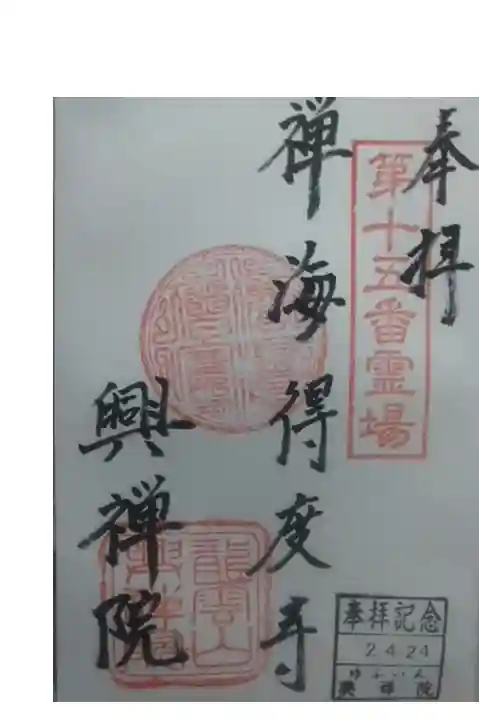 奉拝
第十五番霊場
禅海得度寺
興禅院
奉拝記念
2.4.24
ゆふいん
興禅院